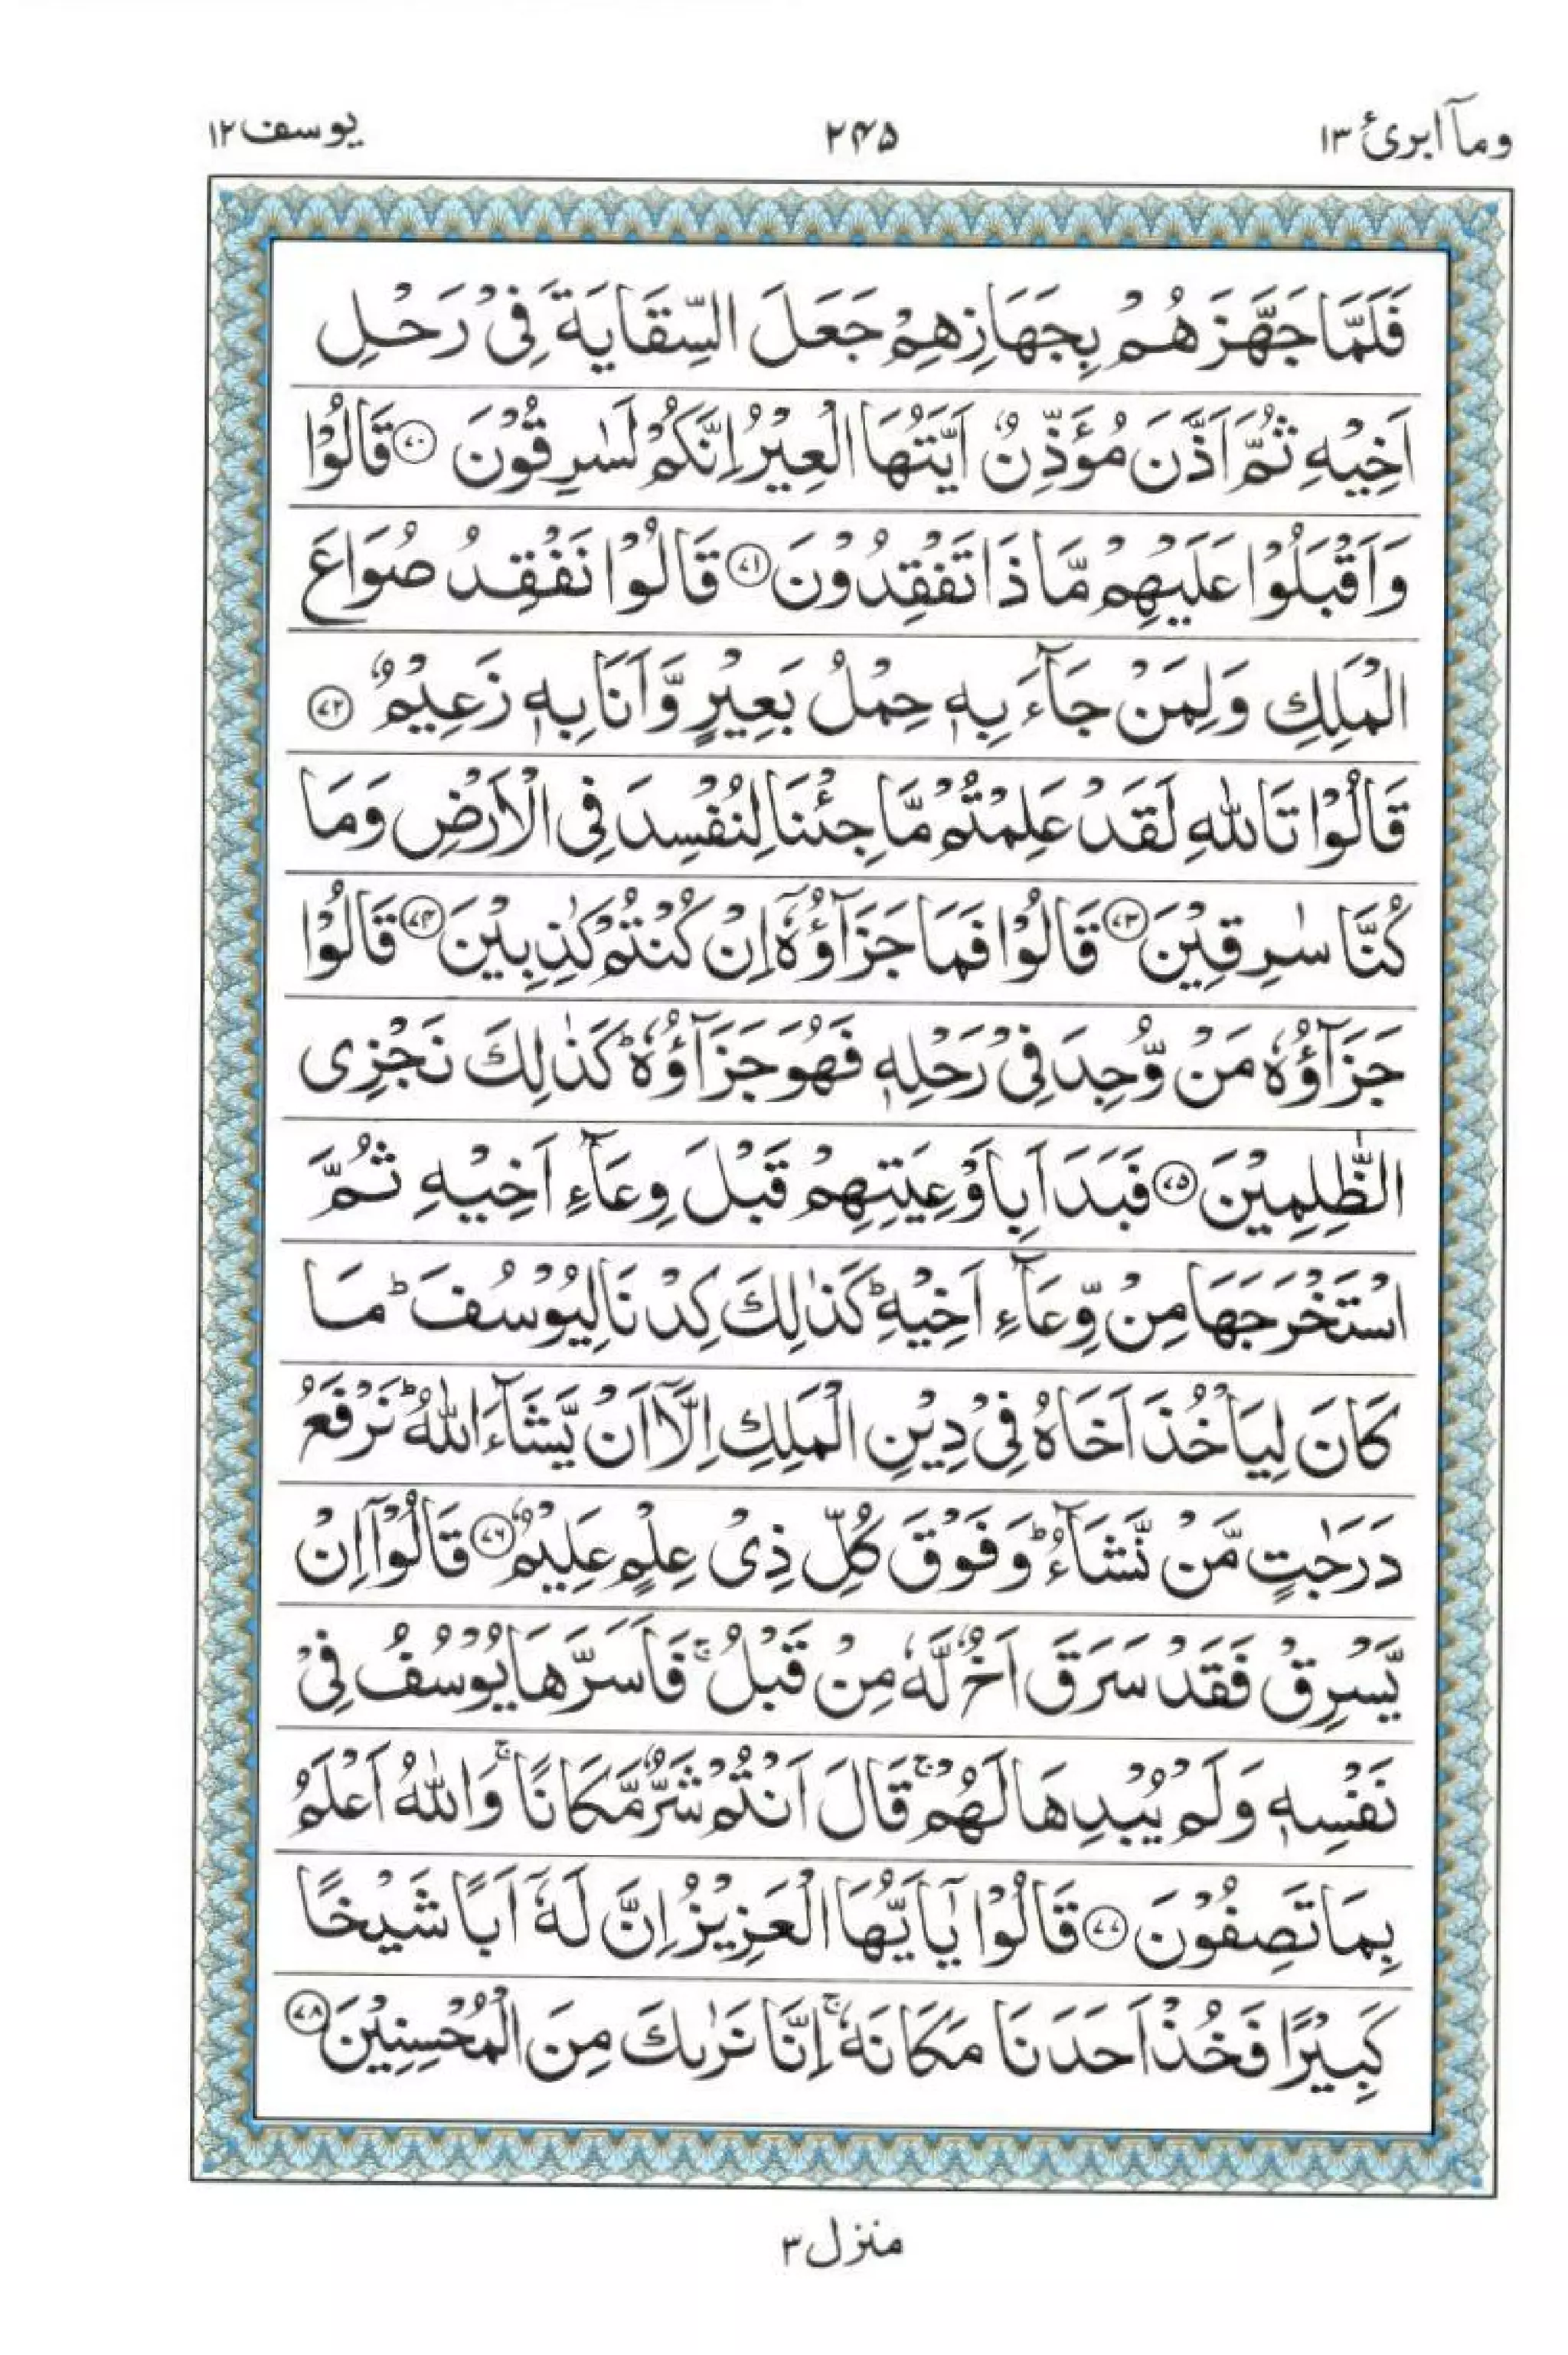 وماۤ ابرئ ١٣
٢۴۵
یوسف ١٢
فَلَمَّا جَهَّزَهُمْ بِجَهَازِهِمْ جَعَلَ السِّقَايَةَ فِیْ رَحْلِ
اَخِيْهِ ثُمَّ اَذَّنَ مُؤَذِّنٌ اَيَّتُهَا الْعِيْرُ اِنَّكُمْ لَسٰرِقُوْنَ ﴿٧٠﴾ قَالُوْا
وَاَقْبَلُوْا عَلَيْهِمْ مَّا ذَا تَفْقِدُوْنَ ﴿٧١﴾ قَالُوْا نَفْقِدُ صُوَاعَ
الْمَلِكِ وَلِمَنْ جَآءَ بِهٖ حِمْلُ بَعِيْرٍ وَّاَنَا بِهٖ زَعِيْمٌ ﴿٧٢﴾
قَالُوْا تَاللّٰهِ لَقَدْ عَلِمْتُمْ مَّا جِئْنَا لِنُفْسِدَ فِی الْاَرْضِ وَمَا
كُنَّا سٰرِقِيْنَ ﴿٧٣﴾ قَالُوْا فَمَا جَزَآؤُهٗۤ اِنْ كُنْتُمْ كٰذِبِيْنَ ﴿٧۴﴾ قَالُوْا
جَزَآؤُهٗ مَنْ وُّجِدَ فِیْ رَحْلِهٖ فَهُوَ جَزَآؤُهٗ ؕ كَذٰلِكَ نَجْزِی
الظّٰلِمِيْنَ ﴿٧۵﴾ فَبَدَاَ بِاَوْعِيَتِهِمْ قَبْلَ وِعَآءِ اَخِيْهِ ثُمَّ
اسْتَخْرَجَهَا مِنْ وِّعَآءِ اَخِيْهِ ؕ كَذٰلِكَ كِدْنَا لِيُوْسُفَ ؕ مَا
كَانَ لِيَاْخُذَ اَخَاهُ فِیْ دِيْنِ الْمَلِكِ اِلَّاۤ اَنْ يَّشَآءَ اللّٰهُ ؕ نَرْفَعُ
دَرَجٰتٍ مَّنْ نَّشَآءُ ؕ وَفَوْقَ كُلِّ ذِیْ عِلْمٍ عَلِيْمٌ ﴿٧۶﴾ قَالُوْۤا اِنْ
يَّسْرِقْ فَقَدْ سَرَقَ اَخٌ لَّهٗ مِنْ قَبْلُ ۚ فَاَسَرَّهَا يُوْسُفُ فِیْ
نَفْسِهٖ وَلَمْ يُبْدِهَا لَهُمْ ۚ قَالَ اَنْتُمْ شَرٌّ مَّكَانًا ۚ وَاللّٰهُ اَعْلَمُ
بِمَا تَصِفُوْنَ ﴿٧٧﴾ قَالُوْا يٰۤاَيُّهَا الْعَزِيْزُ اِنَّ لَهٗۤ اَبًا شَيْخًا
كَبِيْرًا فَخُذْ اَحَدَنَا مَكَانَهٗ ۚ اِنَّا نَرٰىكَ مِنَ الْمُحْسِنِيْنَ ﴿٧٨﴾
منزل ٣